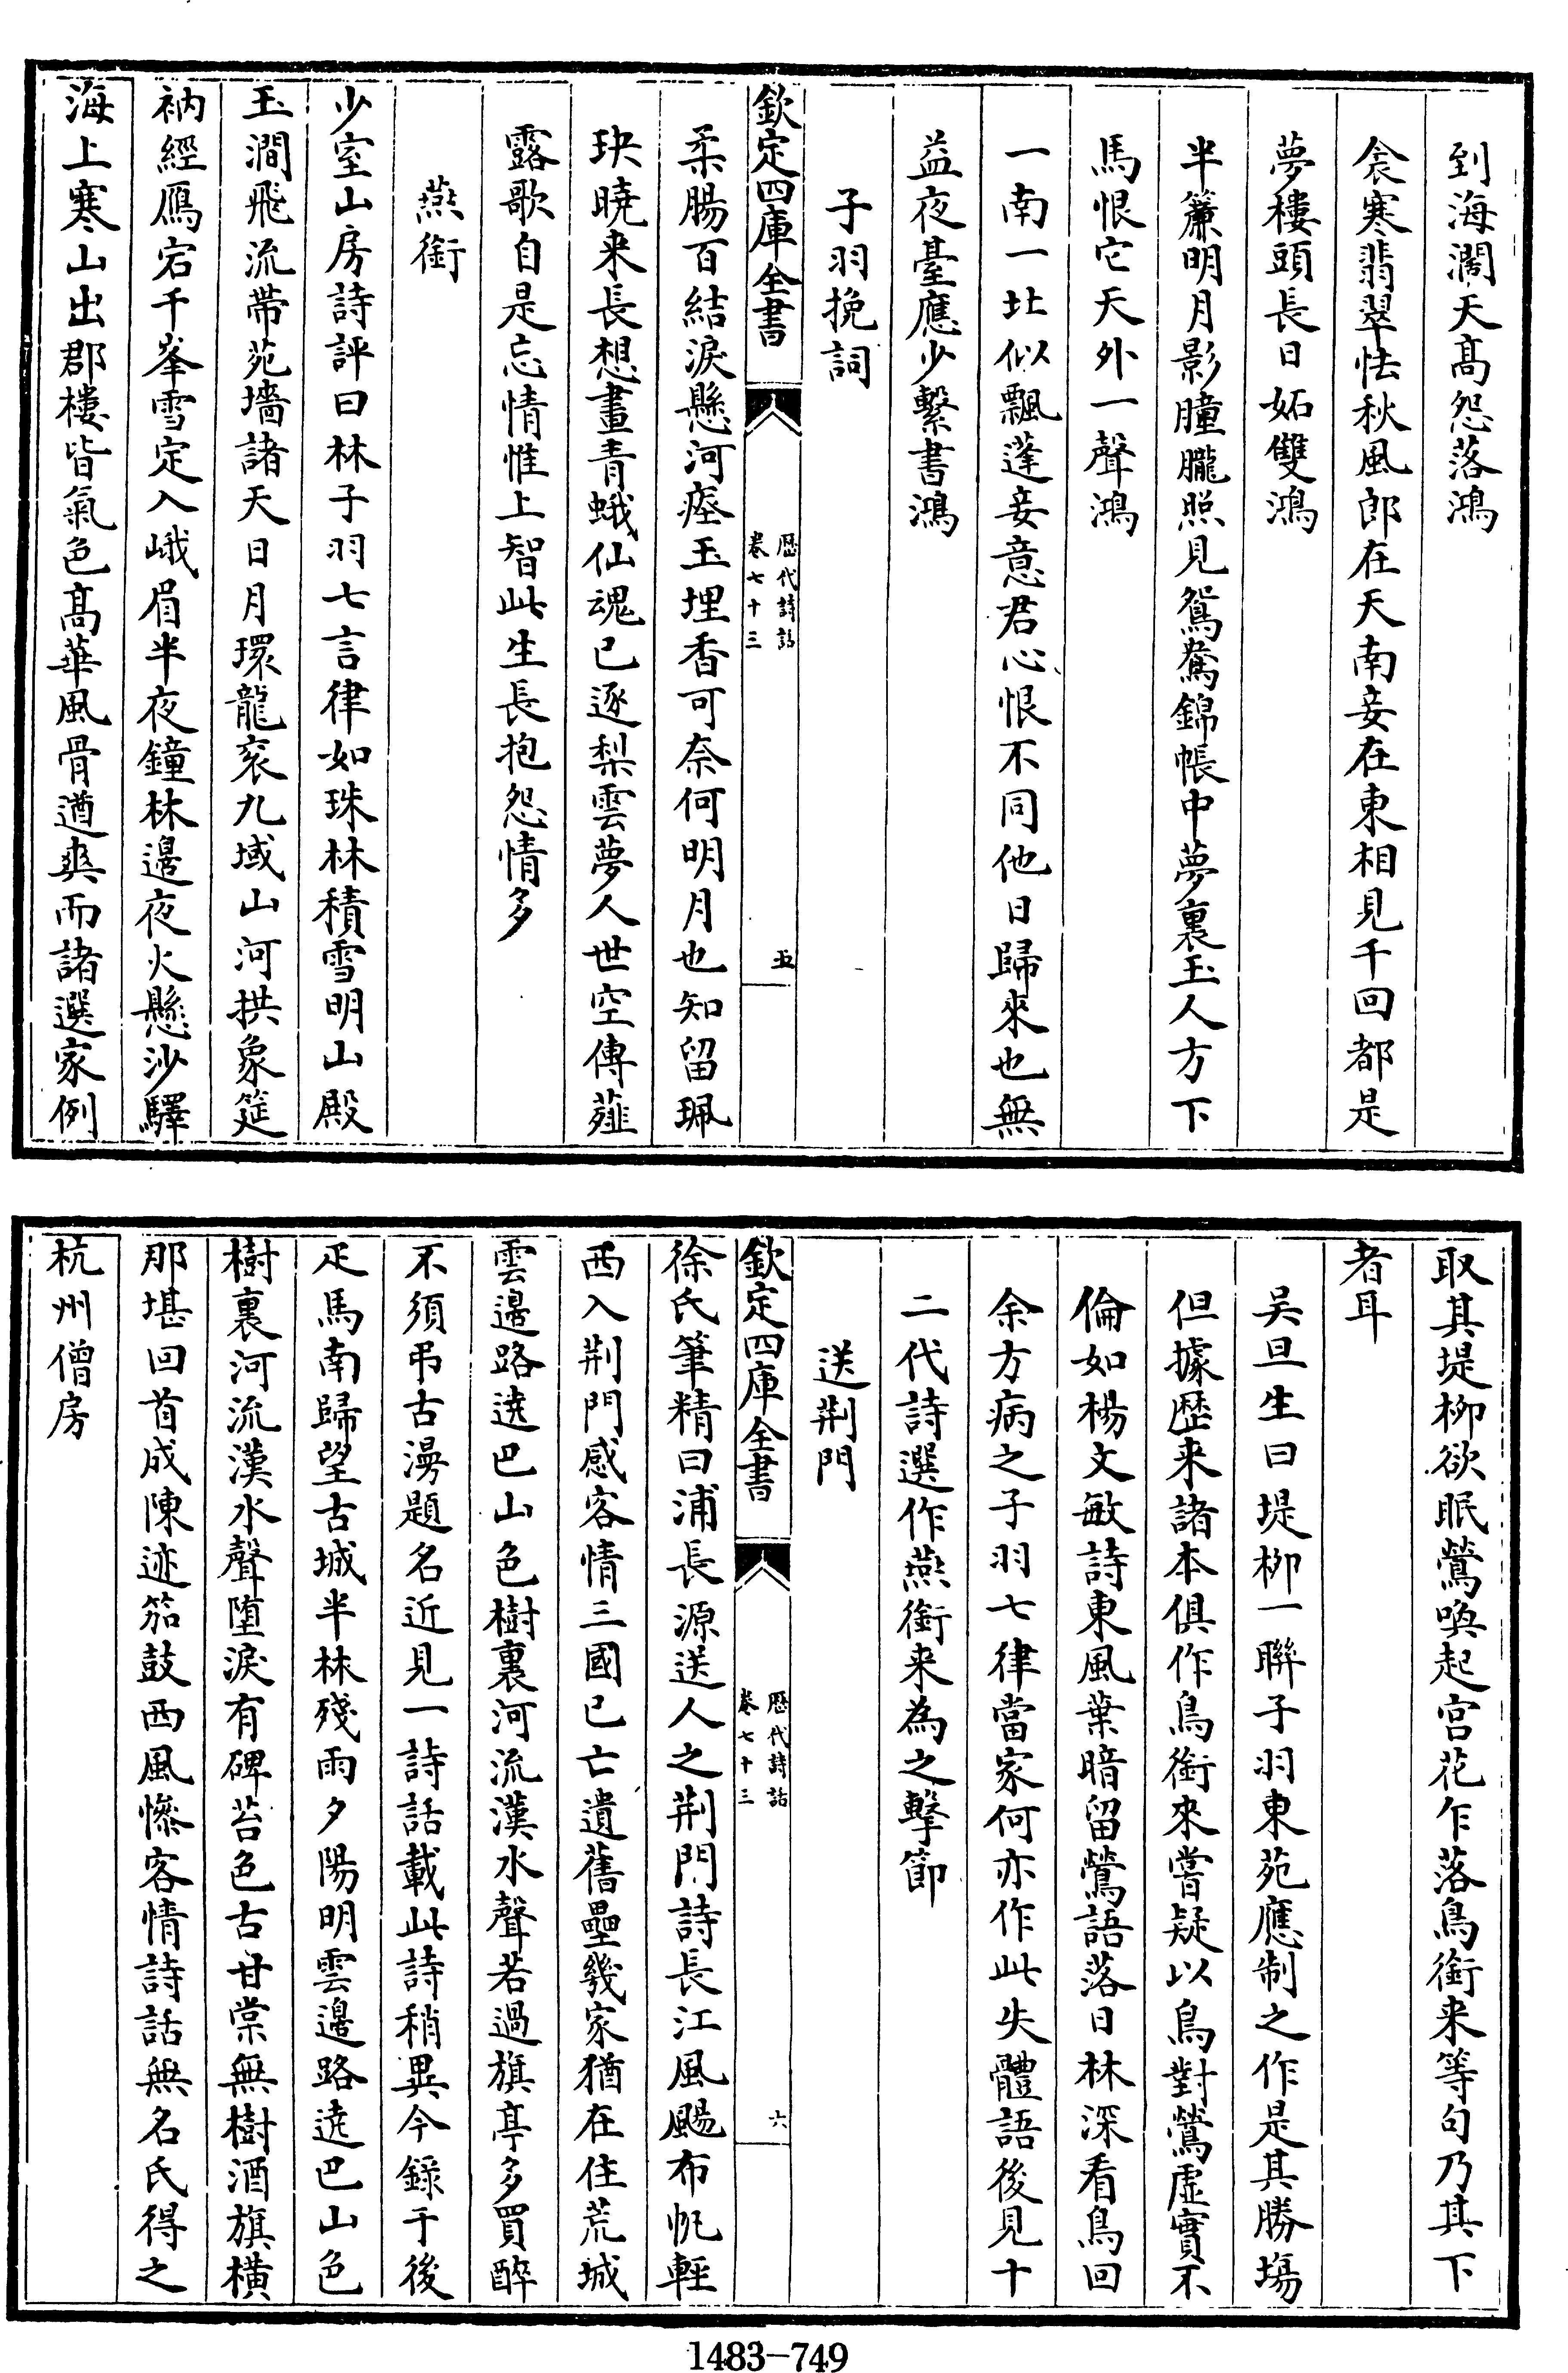 到海濶天髙怨落鴻
衾寒翡翠怯秋風郎在天南妾在東相見千回都是
夢樓頭長日妬雙鴻
半簾明月影瞳朧照見鴛鴦錦帳中夢裏玉人方下
馬恨它天外一聲鴻
一南一北似飄蓬妾意君心恨不同他日歸來也無
益夜臺應少繫書鴻
子羽挽詞
欽定四庫全書
歴代詩話
卷七十三
五
柔腸百結淚懸河瘞玉埋香可奈何明月也知留珮
玦曉来長想畫青蛾仙魂已逐梨雲夢人世空傳薤
露歌自是忘情惟上智此生長抱怨情多
燕銜
少室山房詩評曰林子羽七言律如珠林積雪明山殿
玉澗飛流帶苑墻諸天日月環龍衮九域山河拱象筵
衲經鴈宕千峯雪定入峨眉半夜鐘林邊夜火懸沙驛
海上寒山出郡樓皆氣色髙華風骨遒爽而諸選家例
取其堤柳欲眠鶯喚起宫花乍落鳥銜来等句乃其下
者耳
吴旦生曰堤柳一聯子羽東苑應制之作是其勝塲
但據歴来諸本俱作鳥銜來嘗疑以鳥對鶯虚實不
倫如楊文敏詩東風葉暗留鶯語落日林深看鳥回
余方病之子羽七律當家何亦作此失體語後見十
二代詩選作燕銜来為之擊節
送荆門
欽定四庫全書
歴代詩話
卷七十三
六
徐氏筆精曰浦長源送人之荆門詩長江風颺布帆輕
西入荆門感客情三國已亡遺舊壘幾家猶在住荒城
雲邊路遶巴山色樹裏河流漢水聲若過旗亭多買醉
不須弔古漫題名近見一詩話載此詩稍異今録于後
疋馬南歸望古城半林殘雨夕陽明雲邊路遶巴山色
樹裏河流漢水聲墮淚有碑苔色古甘棠無樹酒旗横
那堪回首成陳迹笳鼓西風慘客情詩話無名氏得之
杭州僧房
1483-749